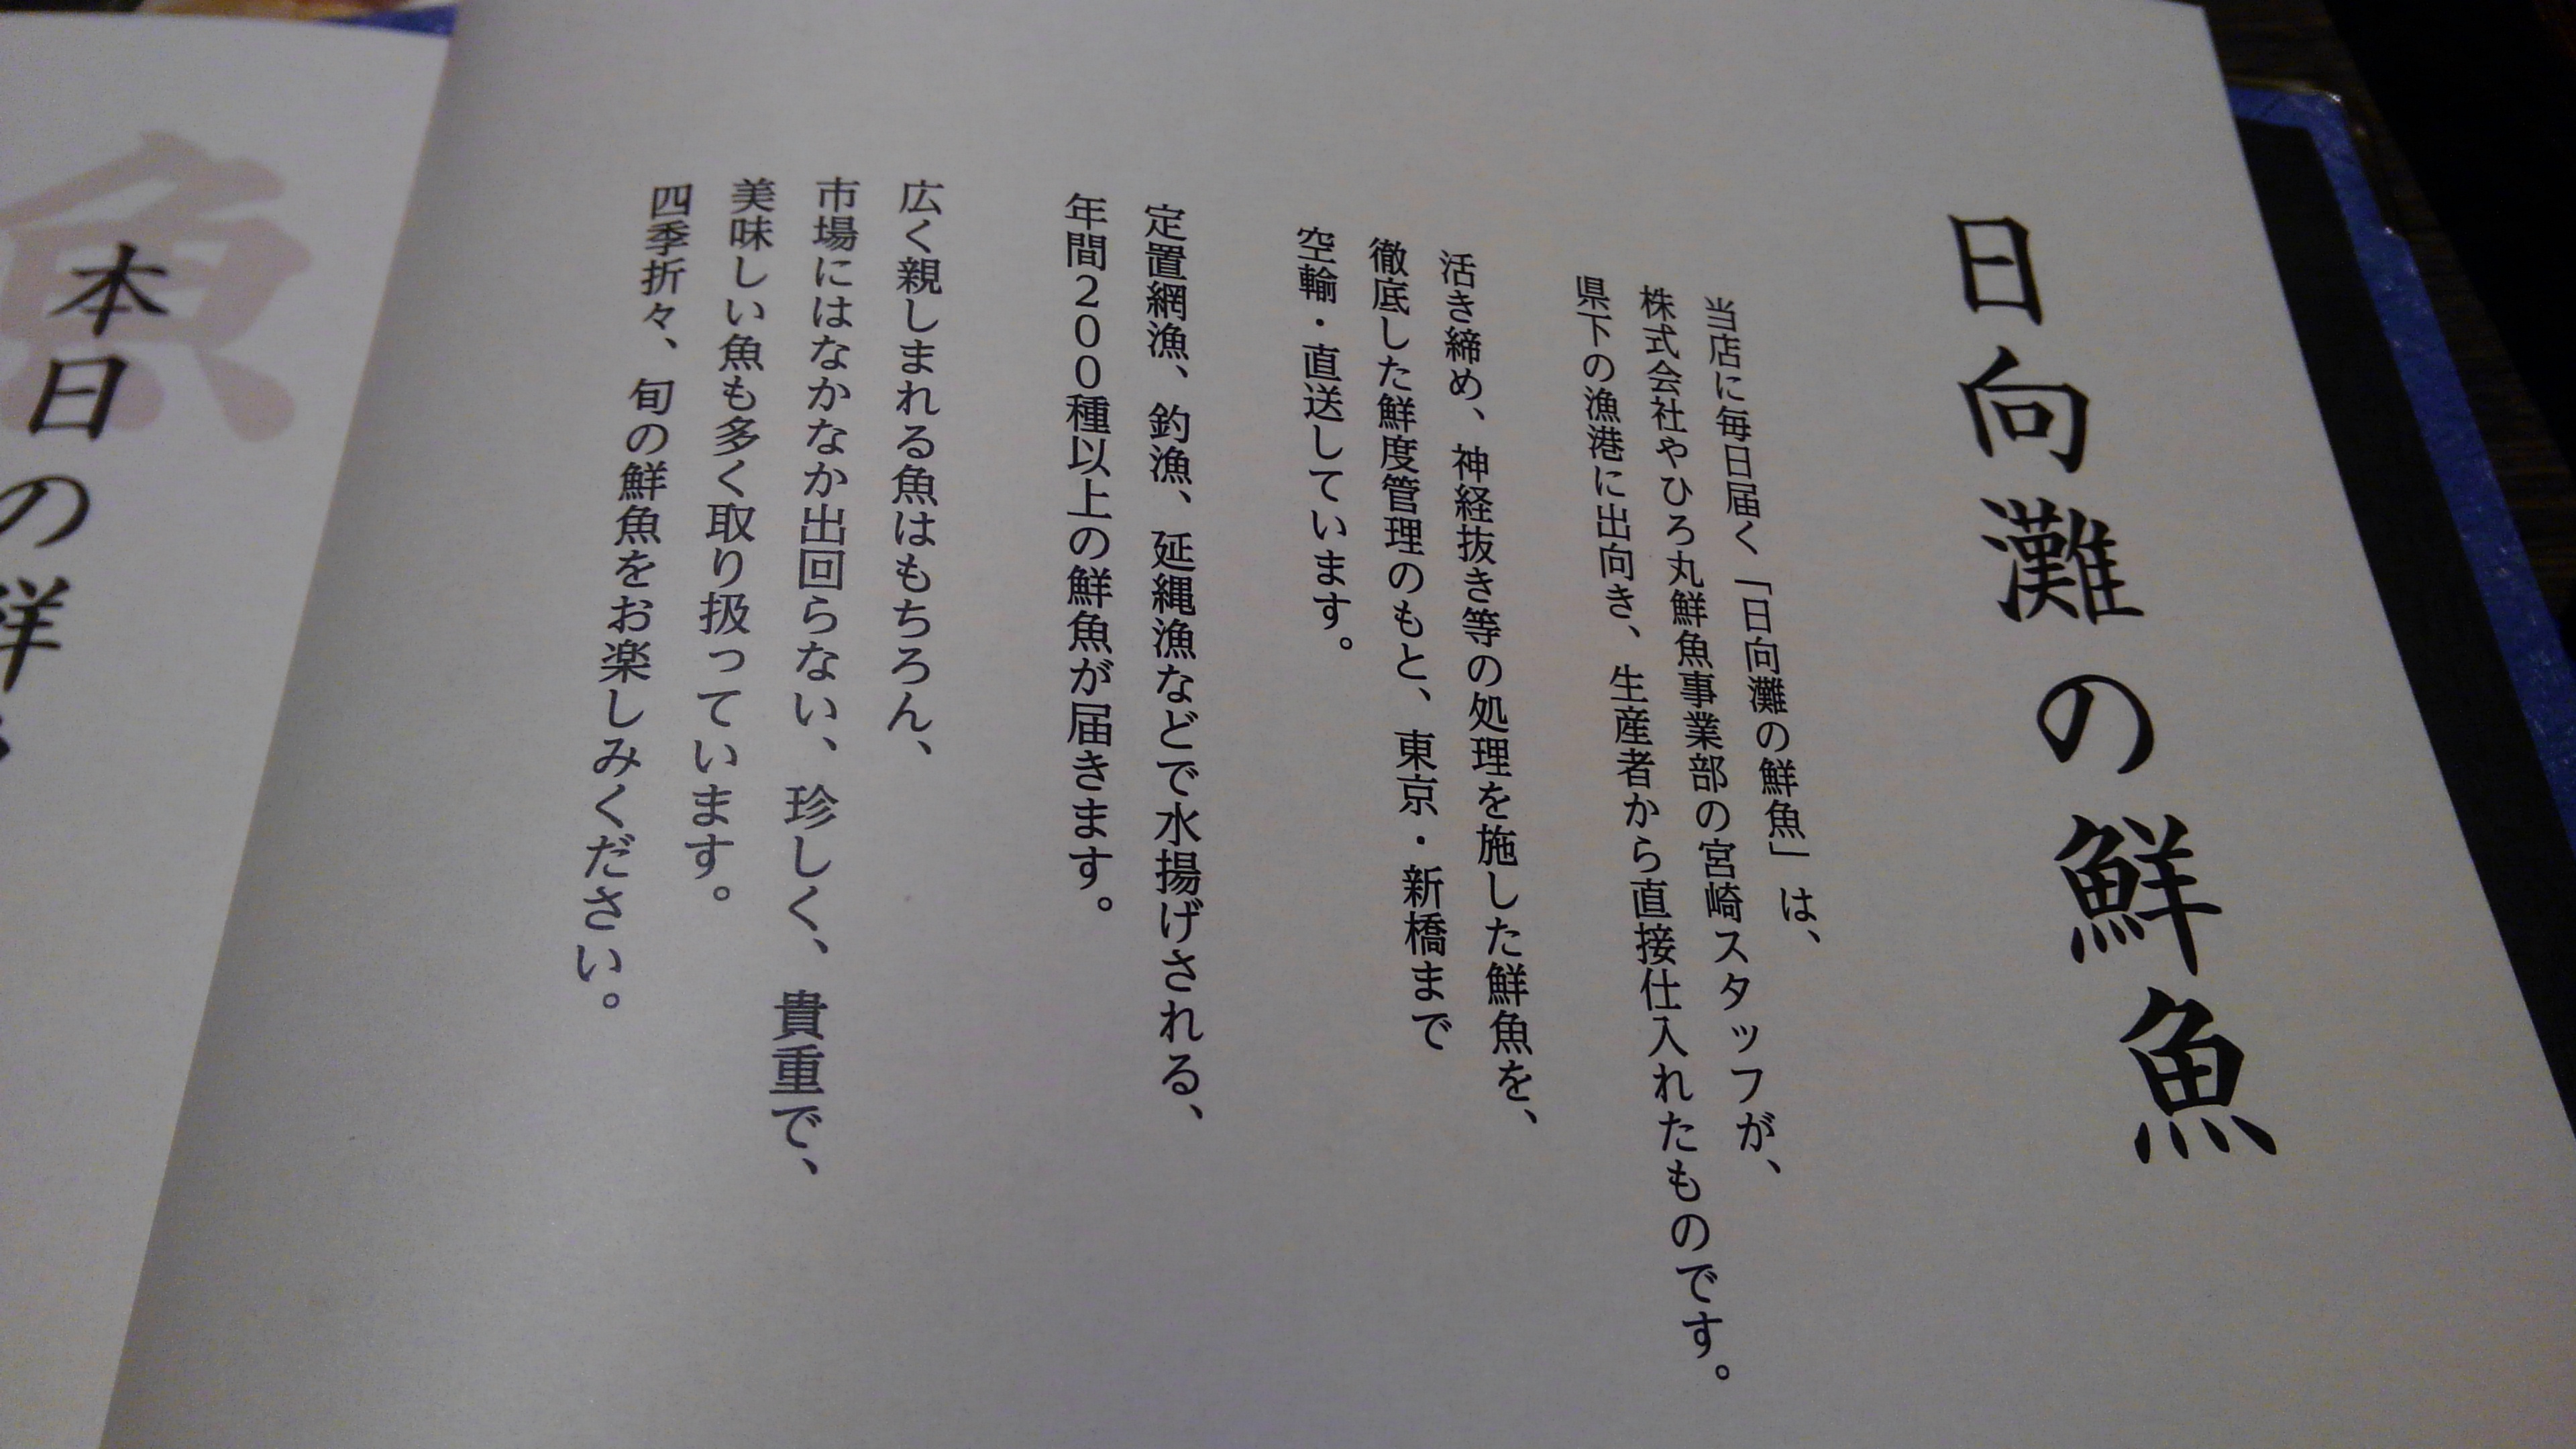 日向灘の鮮魚
当店に毎日届く「日向灘の鮮魚」は、
株式会社やひろ丸鮮魚事業部の宮崎スタッフが、
県下の漁港に出向き、生産者から直接仕入れたものです。
活き締め、神経抜き等の処理を施した鮮魚を、
徹底した鮮度管理のもと、東京・新橋まで
空輸・直送しています。
定置網漁、釣漁、延縄漁などで水揚げされる、
年間200種以上の鮮魚が届きます。
広く親しまれる魚はもちろん、
市場にはなかなか出回らない、珍しく、貴重で、
美味しい魚も多く取り扱っています。
四季折々、旬の鮮魚をお楽しみください。
魚
本日の鮮